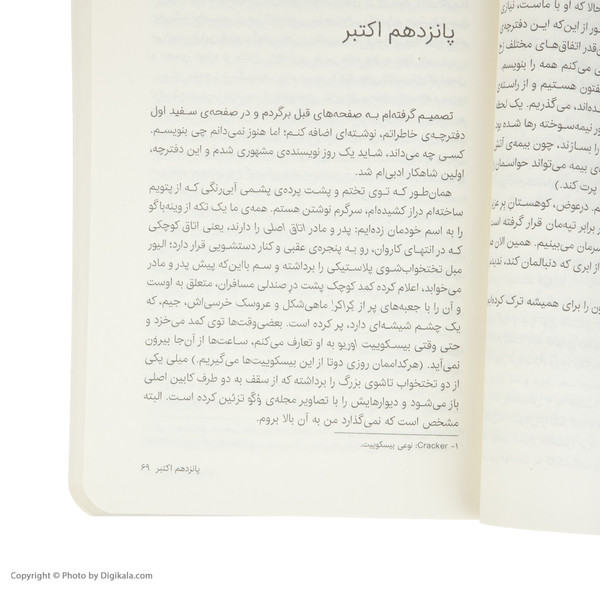 پانزدهم اکتبر
تصمیم گرفته‌ام به صفحه‌های قبل برگردم و در صفحه‌ی سفید اول
دفترچه‌ی خاطراتم، نوشته‌ای اضافه کنم؛ اما هنوز نمی‌دانم چی بنویسم.
کسی چه می‌داند، شاید یک روز نویسنده‌ی مشهوری شدم و این دفترچه،
اولین شاهکار ادبی‌ام شد.
همان‌طور که توی تختم و پشت پرده‌ی پشمی آبی‌رنگی که از پتویم
ساخته‌ام دراز کشیده‌ام، سرگرم نوشتن هستم. همه‌ی ما یک تکه از وینه‌باگو
را به اسم خودمان زده‌ایم: پدر و مادر اتاق اصلی را دارند، یعنی اتاق کوچکی
که در انتهای کاروان، رو به پنجره‌ی عقبی و کنار دستشویی قرار دارد؛ الیور
مبل تختخواب‌شوی پلاستیکی را برداشته و سم بااین‌که پیش پدر و مادر
می‌خوابد، اعلام کرده کمد کوچک پشت در صندلی مسافران، متعلق به اوست
و آن را با جعبه‌های پر از کِراکِر۱ ماهی‌شکل و عروسک خرسی‌اش، جیم، که
یک چشم شیشه‌ای دارد، پر کرده است. بعضی‌وقت‌ها توی کمد می‌خزد و
حتی وقتی بیسکوییت اوریو به او تعارف می‌کنم، ساعت‌ها از آن‌جا بیرون
نمی‌آید. (هرکداممان روزی دوتا از این بیسکوییت‌ها می‌گیریم.) میلی یکی
از دو تختخواب تاشوی بزرگ را برداشته که از سقف به دو طرف کابین اصلی
باز می‌شود و دیوارهایش را با تصاویر مجله‌ی وُگ تزئین کرده است. البته
مشخص است که نمی‌گذارد من به آن بالا بروم.
۱- Cracker: نوعی بیسکوییت.
پانزدهم اکتبر ۶۹
حالا که او با ماست، نیازی
از این‌که این دفترچه‌ی
قدر اتفاق‌های مختلف
می‌کنم همه را بنویسم.
هستیم و از راسته‌ی
می‌گذریم. یک
نیمه‌سوخته رها شده
را بسازند، چون بیمه‌ی
بیمه می‌تواند حواسمان
پرت کند.)
درعوض، کوهستان
برابر تپه‌مان قرار گرفته
سرمان می‌بینیم. همین الان
از ابری که دنبالمان کند،
را برای همیشه ترک کرده
Copyright © Photo by Digikala.com